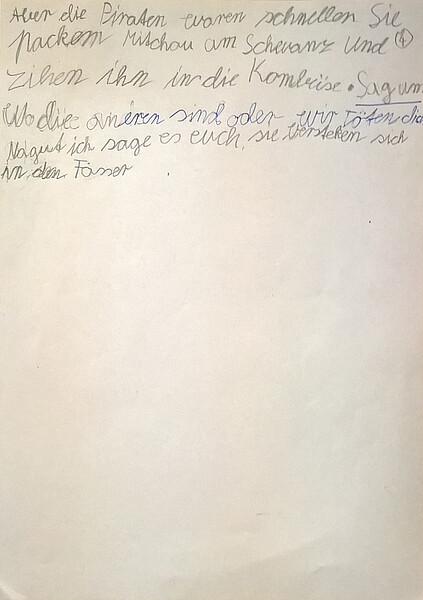 Aber die Piraten waren schneller Sie
packem Mitschau am Schwanz und 4
zihen ihn in die Kombüse. Sag um
Wo die aneren sind oder wir töten di
Nagut ich sage es euch, sie versteken sich
in den Fässer